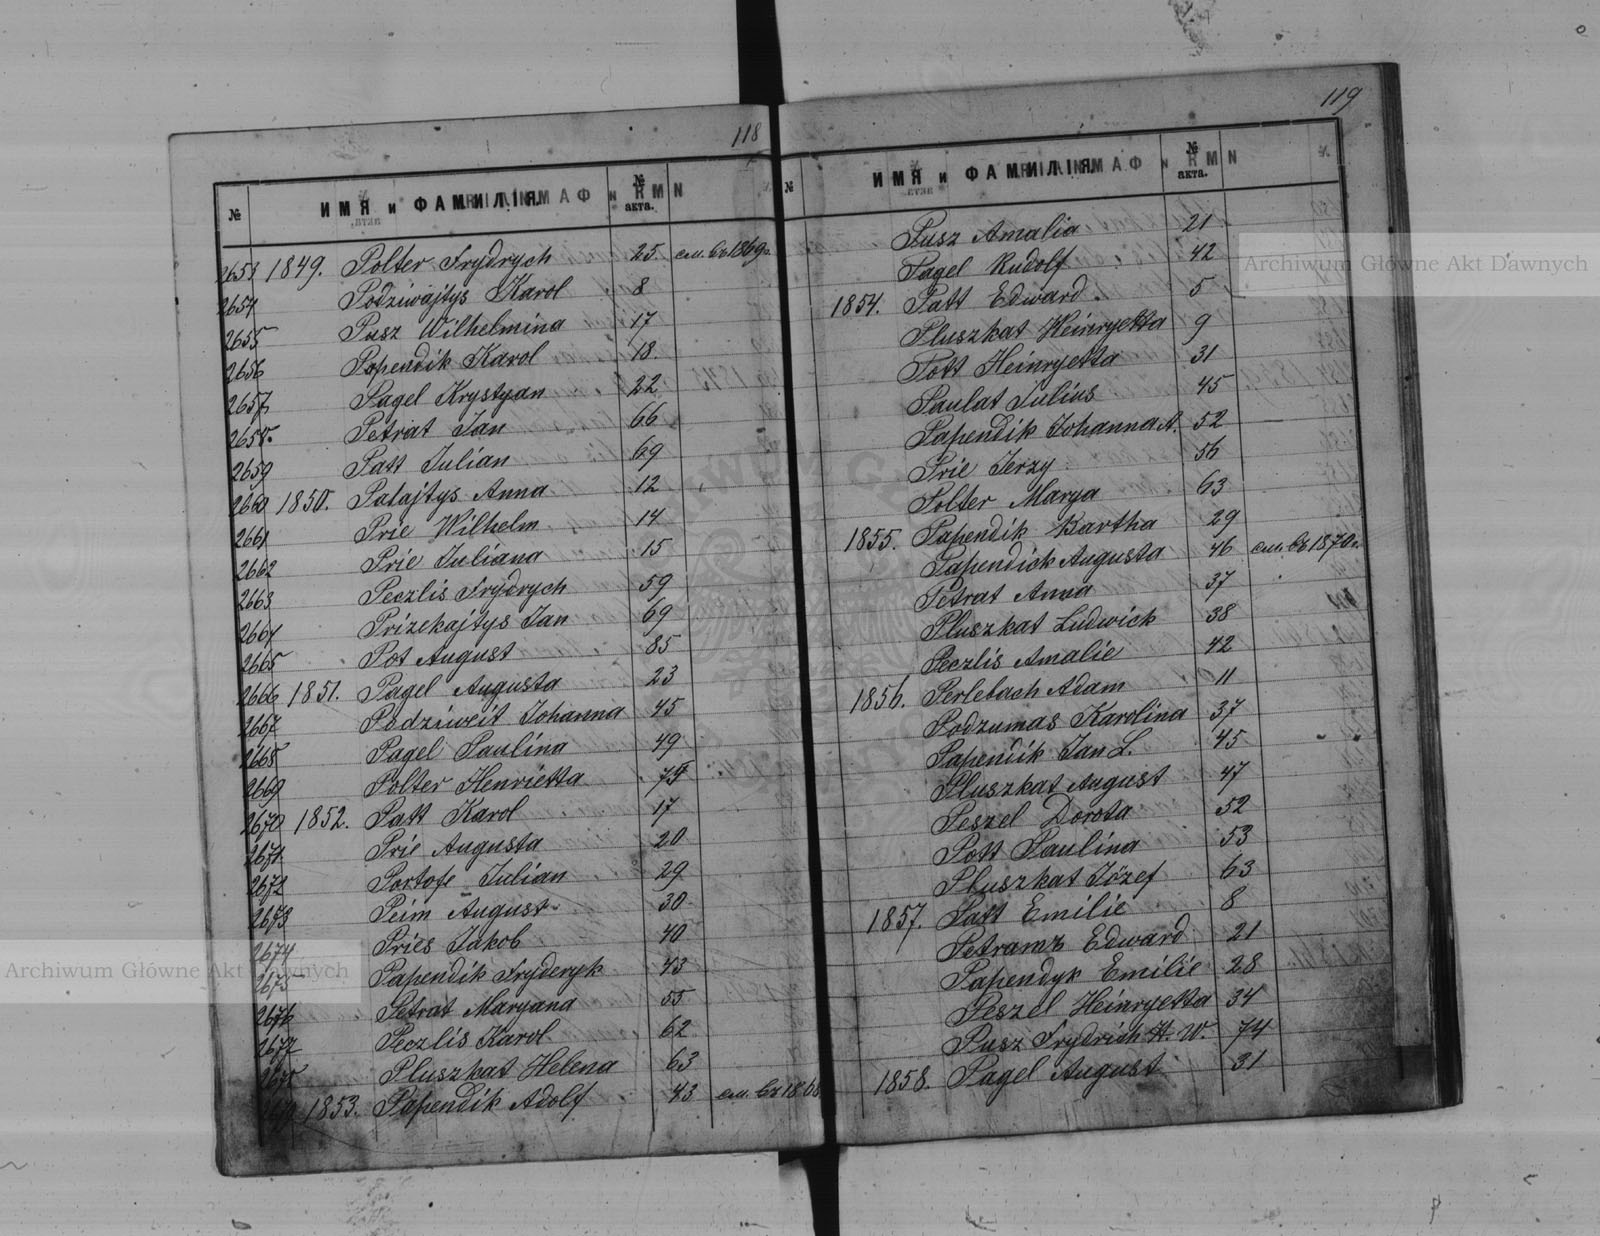 118
№ ИМЯ и ФАМИЛІЯ. № акта.
2653 1849. Polter Frydrych 25 см. въ 1869 г.
2654 Podziwajtys Karol 8
2655 Pusz Wilhelmina 17
2656 Papendik Karol 18
2657 Pagel Krystyan 22
2658. Petrat Jan 66
2659 Patt Julian 69
2660 1850. Palajtys Anna 12
2661 Prie Wilhelm 14
2662 Prie Juliana 15
2663 Peczlis Frydrych 59
2664 Prizekajtys Jan 69
2665 Pot August 85
2666 1851. Pagel Augusta 23
2667 Podziweit Johanna 45
2668 Pagel Paulina 49
2669 Polter Henrietta 75
2670 1852. Patt Karol 17
2671 Prie Augusta 20
2672 Portofe Julian 29
2673 Peim August 30
2674 Pries Jakob 40
2675 Papendik Fryderyk 43
2676 Petrat Maryana 55
2677 Peczlis Karol 62
2678 Pluszkat Helena 63
2679 1853. Papendik Adolf 43 см. въ 1868
119
№ ИМЯ и ФАМИЛІЯ. № акта.
Pusz Amalia 21
Pagel Rudolf 42
1854. Patt Edward 5
Pluszkat Heinryetta 9
Pott Heinryetta 31
Paulat Julius 45
Papendik Johanna A. 52
Prie Jerzy 56
Polter Marya 63
1855. Papendik Bartha 29
Papendick Augusta 46 см. въ 1870 г.
Petrat Anna 37
Pluszkat Ludwick 38
Peczlis Amalie 42
1856. Perlebach Adam 11
Podzumas Karolina 37
Papendik Jan L. 45
Pluszkat August 47
Peszel Dorota 52
Pott Paulina 53
Pluszkat Józef 63
1857. Patt Emilie 8
Petramz Edward 21
Papendyk Emilie 28
Peszel Heinryetta 34
Pusz Frydrich H. W. 74
1858. Pagel August 31
Archiwum Główne Akt Dawnych
Archiwum Główne Akt Dawnych